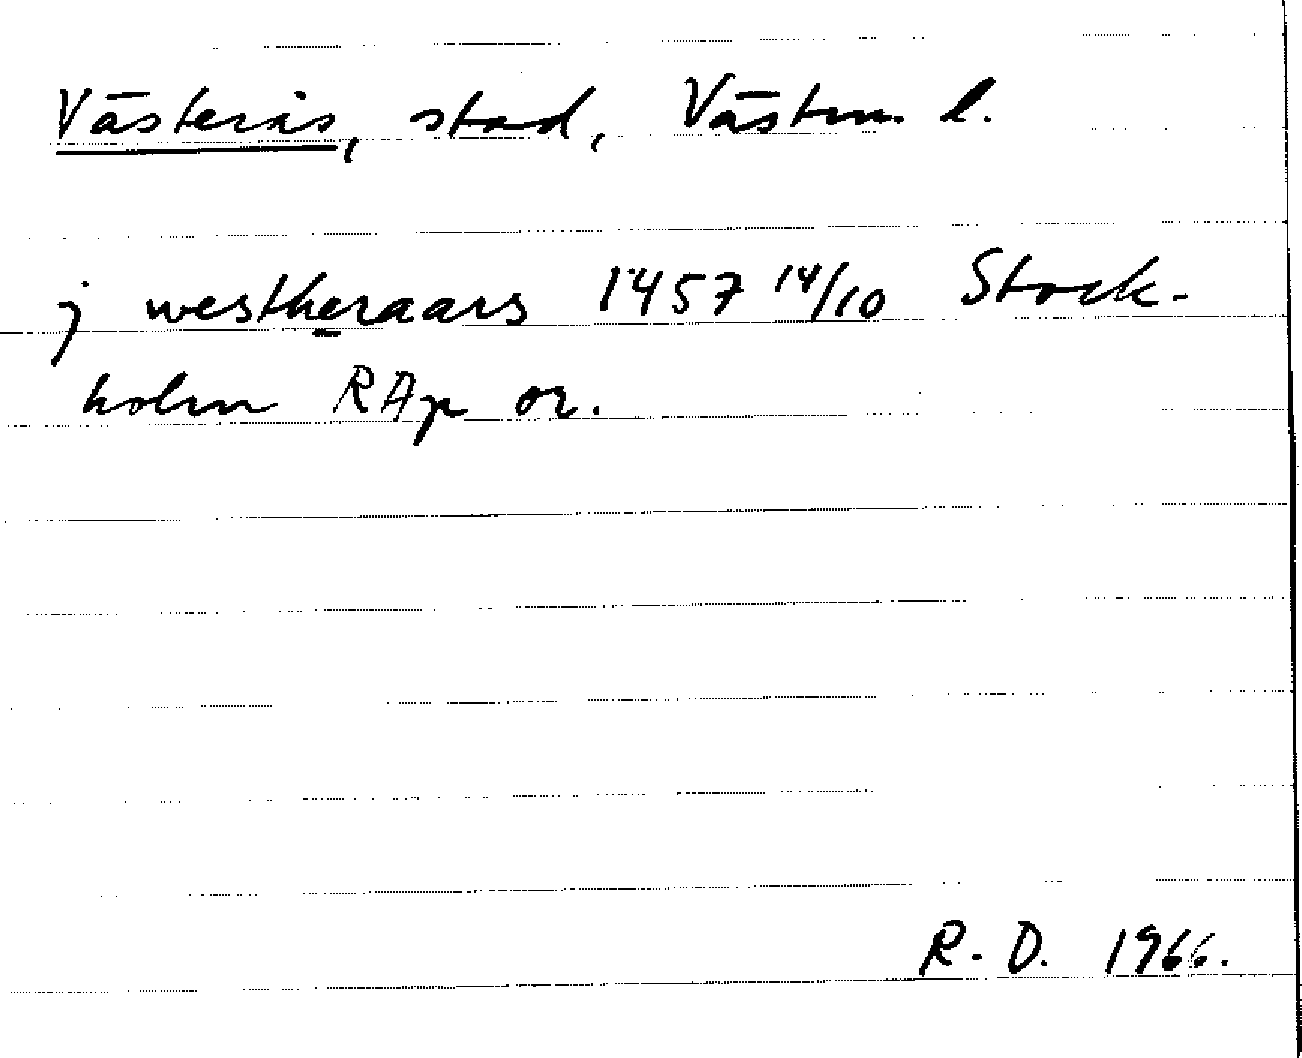 Västerås, stad, Västm. l.
j westheraars 1457 14/10 Stock-
holm RAp or.
R. D. 1966.